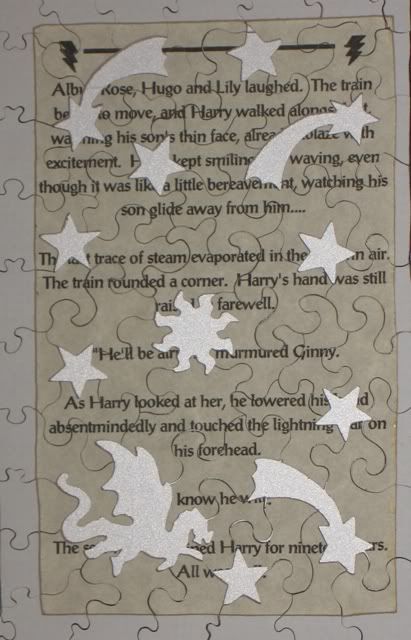 Rose, Hugo and Lily laughed. The train
move, and Harry walked
his son's thin face, with
excitement. kept smiling waving, even
though it was like a little bereavement, watching his
son glide away from him....
trace of steam evaporated in the air.
The train rounded a corner. Harry's hand was still
farewell.
"He'll be murmured Ginny.
As Harry looked at her, he lowered his
absentmindedly and touched the lightning on
his forehead.
know he
The Harry for
All